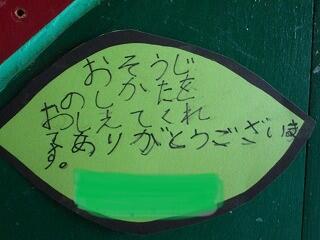 おそうじ
のしかたを
おしえてくれ
てありがとうございま
す。